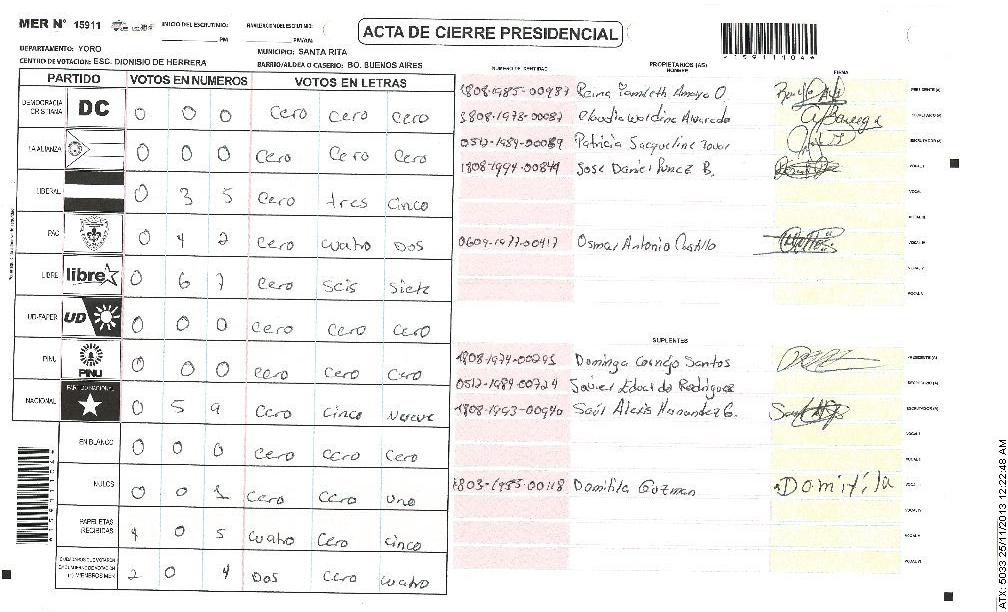 MER N° 15911
INICIO DEL ESCRUTINIO:
PM
PM/AM
ACTA DE CIERRE PRESIDENCIAL
*15911104*
DEPARTAMENTO: YORO
MUNICIPIO: SANTA RITA
CENTRO DE VOTACION: ESC. DIONISIO DE HERRERA
BARRIO/ALDEA O CASERIO: BO. BUENOS AIRES
PARTIDO VOTOS EN NUMEROS VOTOS EN LETRAS
DEMOCRACIA CRISTIANA DC 0 0 0 Cero Cero Cero
LA ALIANZA 0 0 0 Cero Cero Cero
LIBERAL 0 3 5 Cero tres Cinco
PAC 0 4 2 Cero Cuatro Dos
LIBRE libre 0 6 7 Cero Seis Siete
UD-FAPER UD 0 0 0 Cero Cero Cero
PINU PINU 0 0 0 Cero Cero Cero
NACIONAL PARTIDO NACIONAL 0 5 9 Cero Cinco Nueve
EN BLANCO 0 0 0 Cero Cero Cero
NULOS 0 0 1 Cero Cero Uno
PAPELETAS RECIBIDAS 4 0 5 Cuatro Cero Cinco
(+) MIEMBROS MER 2 0 4 Dos Cero Cuatro
NUMERO DE IDENTIDAD
PROPIETARIOS (AS)
NOMBRE
FIRMA
1808-1985-00487 Reina Yamileth Amaya O. PRESIDENTE (A)
1808-1978-00087 Claudia Waldina Alvarado SECRETARIO (A)
0512-1989-00089 Patricia Jacqueline Tovar ESCRUTADOR (A)
1808-1994-00849 Jose Daniel Ponce B. VOCAL I
VOCAL II
VOCAL III
0609-1977-00417 Osmar Antonio Castillo VOCAL IV
VOCAL V
VOCAL VI
SUPLENTES
1808-1974-00295 Dominga Cornejo Santos PRESIDENTE (A)
0512-1984-00724 Javier Eduardo Rodriguez SECRETARIO (A)
1808-1993-00940 Saúl Alexis Hernandez G. ESCRUTADOR (A)
VOCAL I
VOCAL II
1803-1955-00118 Domitila Guzman Domitila VOCAL III
VOCAL IV
VOCAL V
VOCAL VI
ATX: 5033 25/11/2013 12:22:48 AM